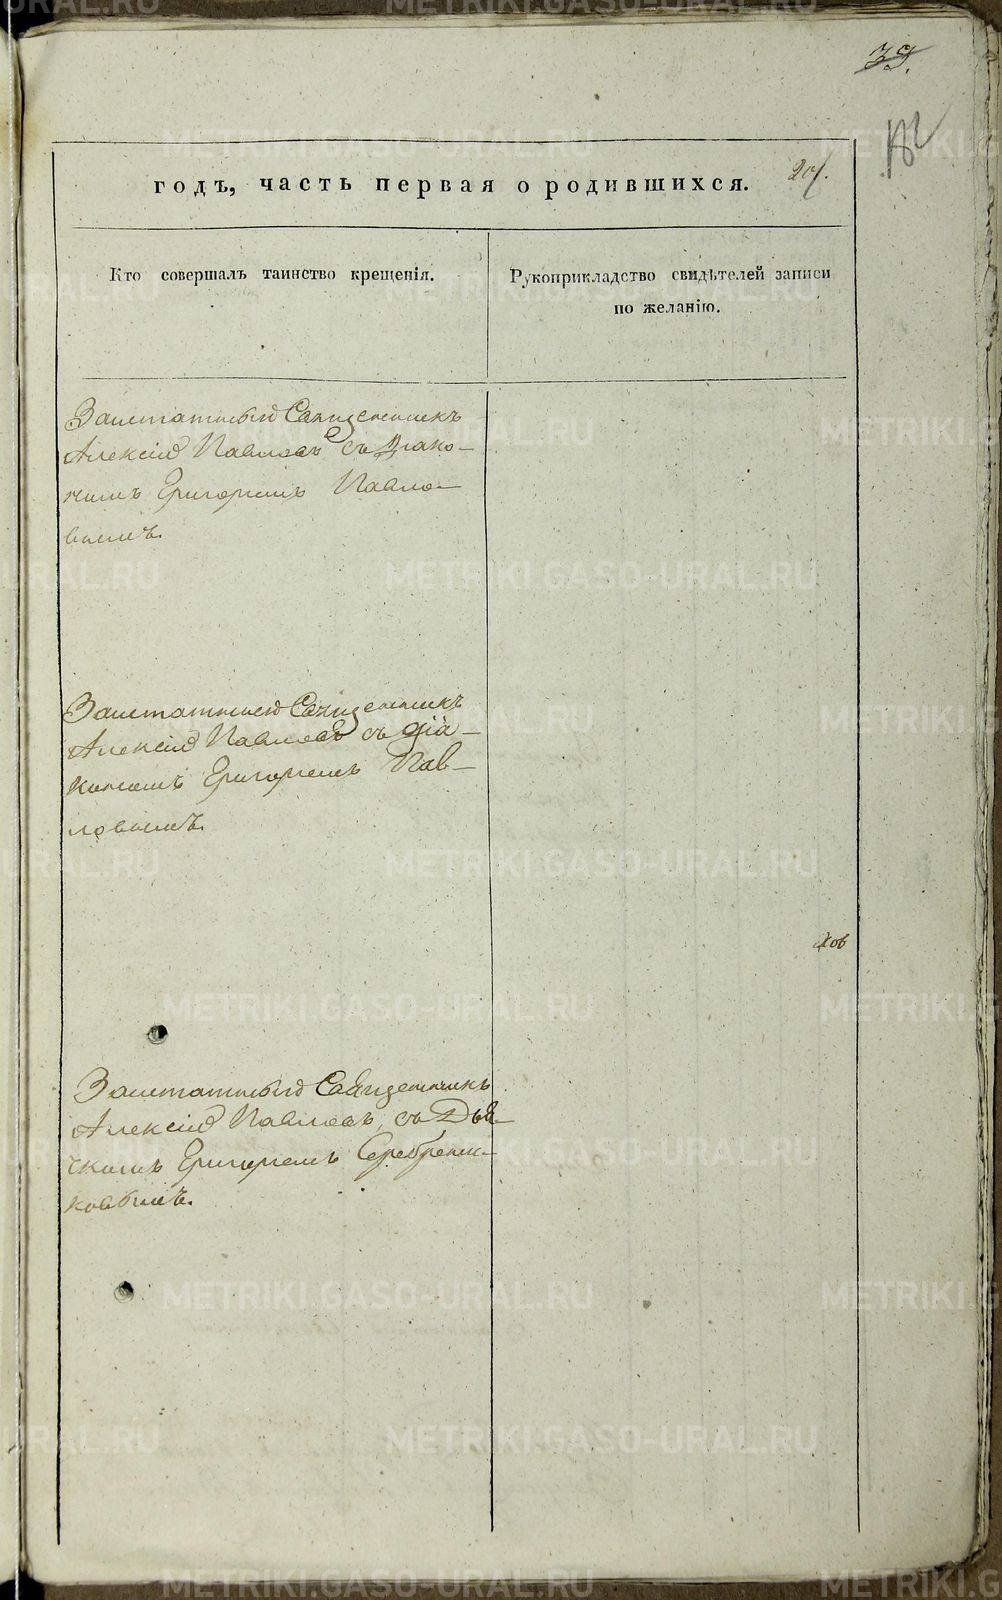 39.
годъ, часть первая о родившихся.
Кто совершалъ таинство крещенія.
Рукоприкладство свидѣтелей записи
по желанію.
Заштатный Священникъ
Алексій Павловъ съ Діако-
номъ Григоріемъ Павло-
вымъ.
Заштатный Священникъ
Алексій Павловъ съ діа-
кономъ Григоріемъ Пав-
ловымъ.
ков
Заштатный Священникъ
Алексій Павловъ, съ Дья-
чкомъ Григоріемъ Серебрени-
ковымъ.
METRIKI.GASO-URAL.RU